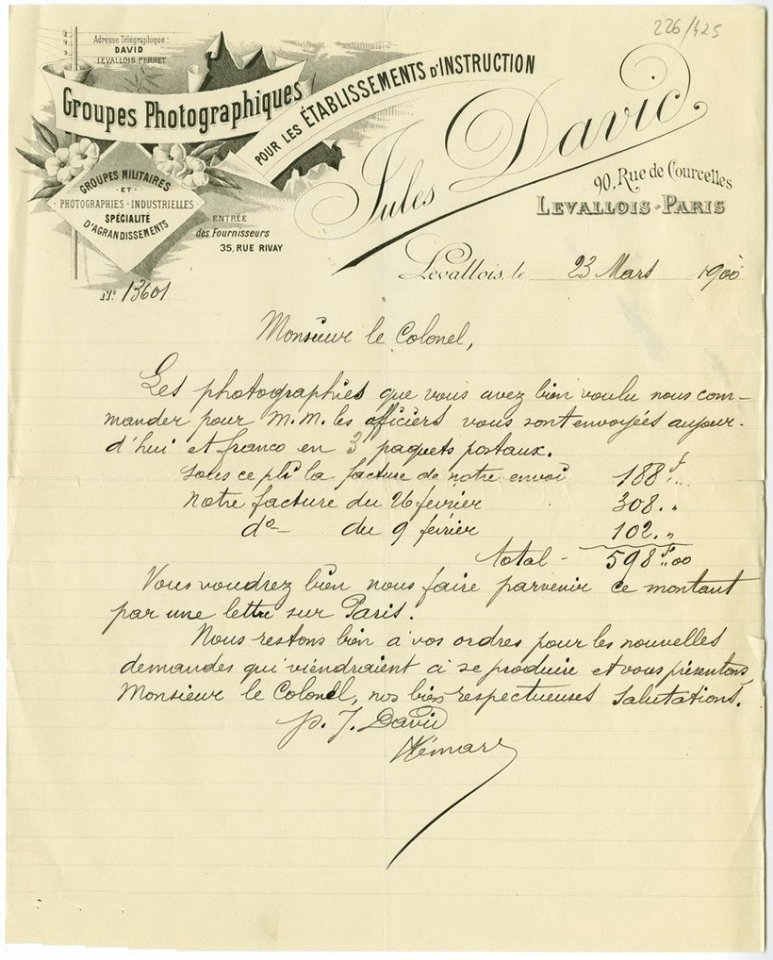 226/425
Adresse Télégraphique :
DAVID
LEVALLOIS PERRET
Groupes Photographiques
POUR LES ÉTABLISSEMENTS D'INSTRUCTION
Jules David
90, Rue de Courcelles
LEVALLOIS-PARIS
GROUPES MILITAIRES
ET
PHOTOGRAPHIES INDUSTRIELLES
SPÉCIALITÉ
D'AGRANDISSEMENTS
ENTRÉE
des Fournisseurs
35, RUE RIVAY
Levallois, le 23 Mars 1900
N° 13601
Monsieur le Colonel,
Les photographies que vous avez bien voulu nous com-
mander pour M.M. les officiers vous sont envoyées aujour-
d'hui et franco en 3 paquets postaux.
Sous ce pli la facture de notre envoi 188 f
Notre facture du 26 février 308. "
d° du 9 février 102. "
total - 598 f.00
Vous voudrez bien nous faire parvenir ce montant
par une lettre sur Paris.
Nous restons bien à vos ordres pour les nouvelles
demandes qui viendraient à se produire et vous présentons,
Monsieur le Colonel, nos bien respectueuses salutations.
p. J. David